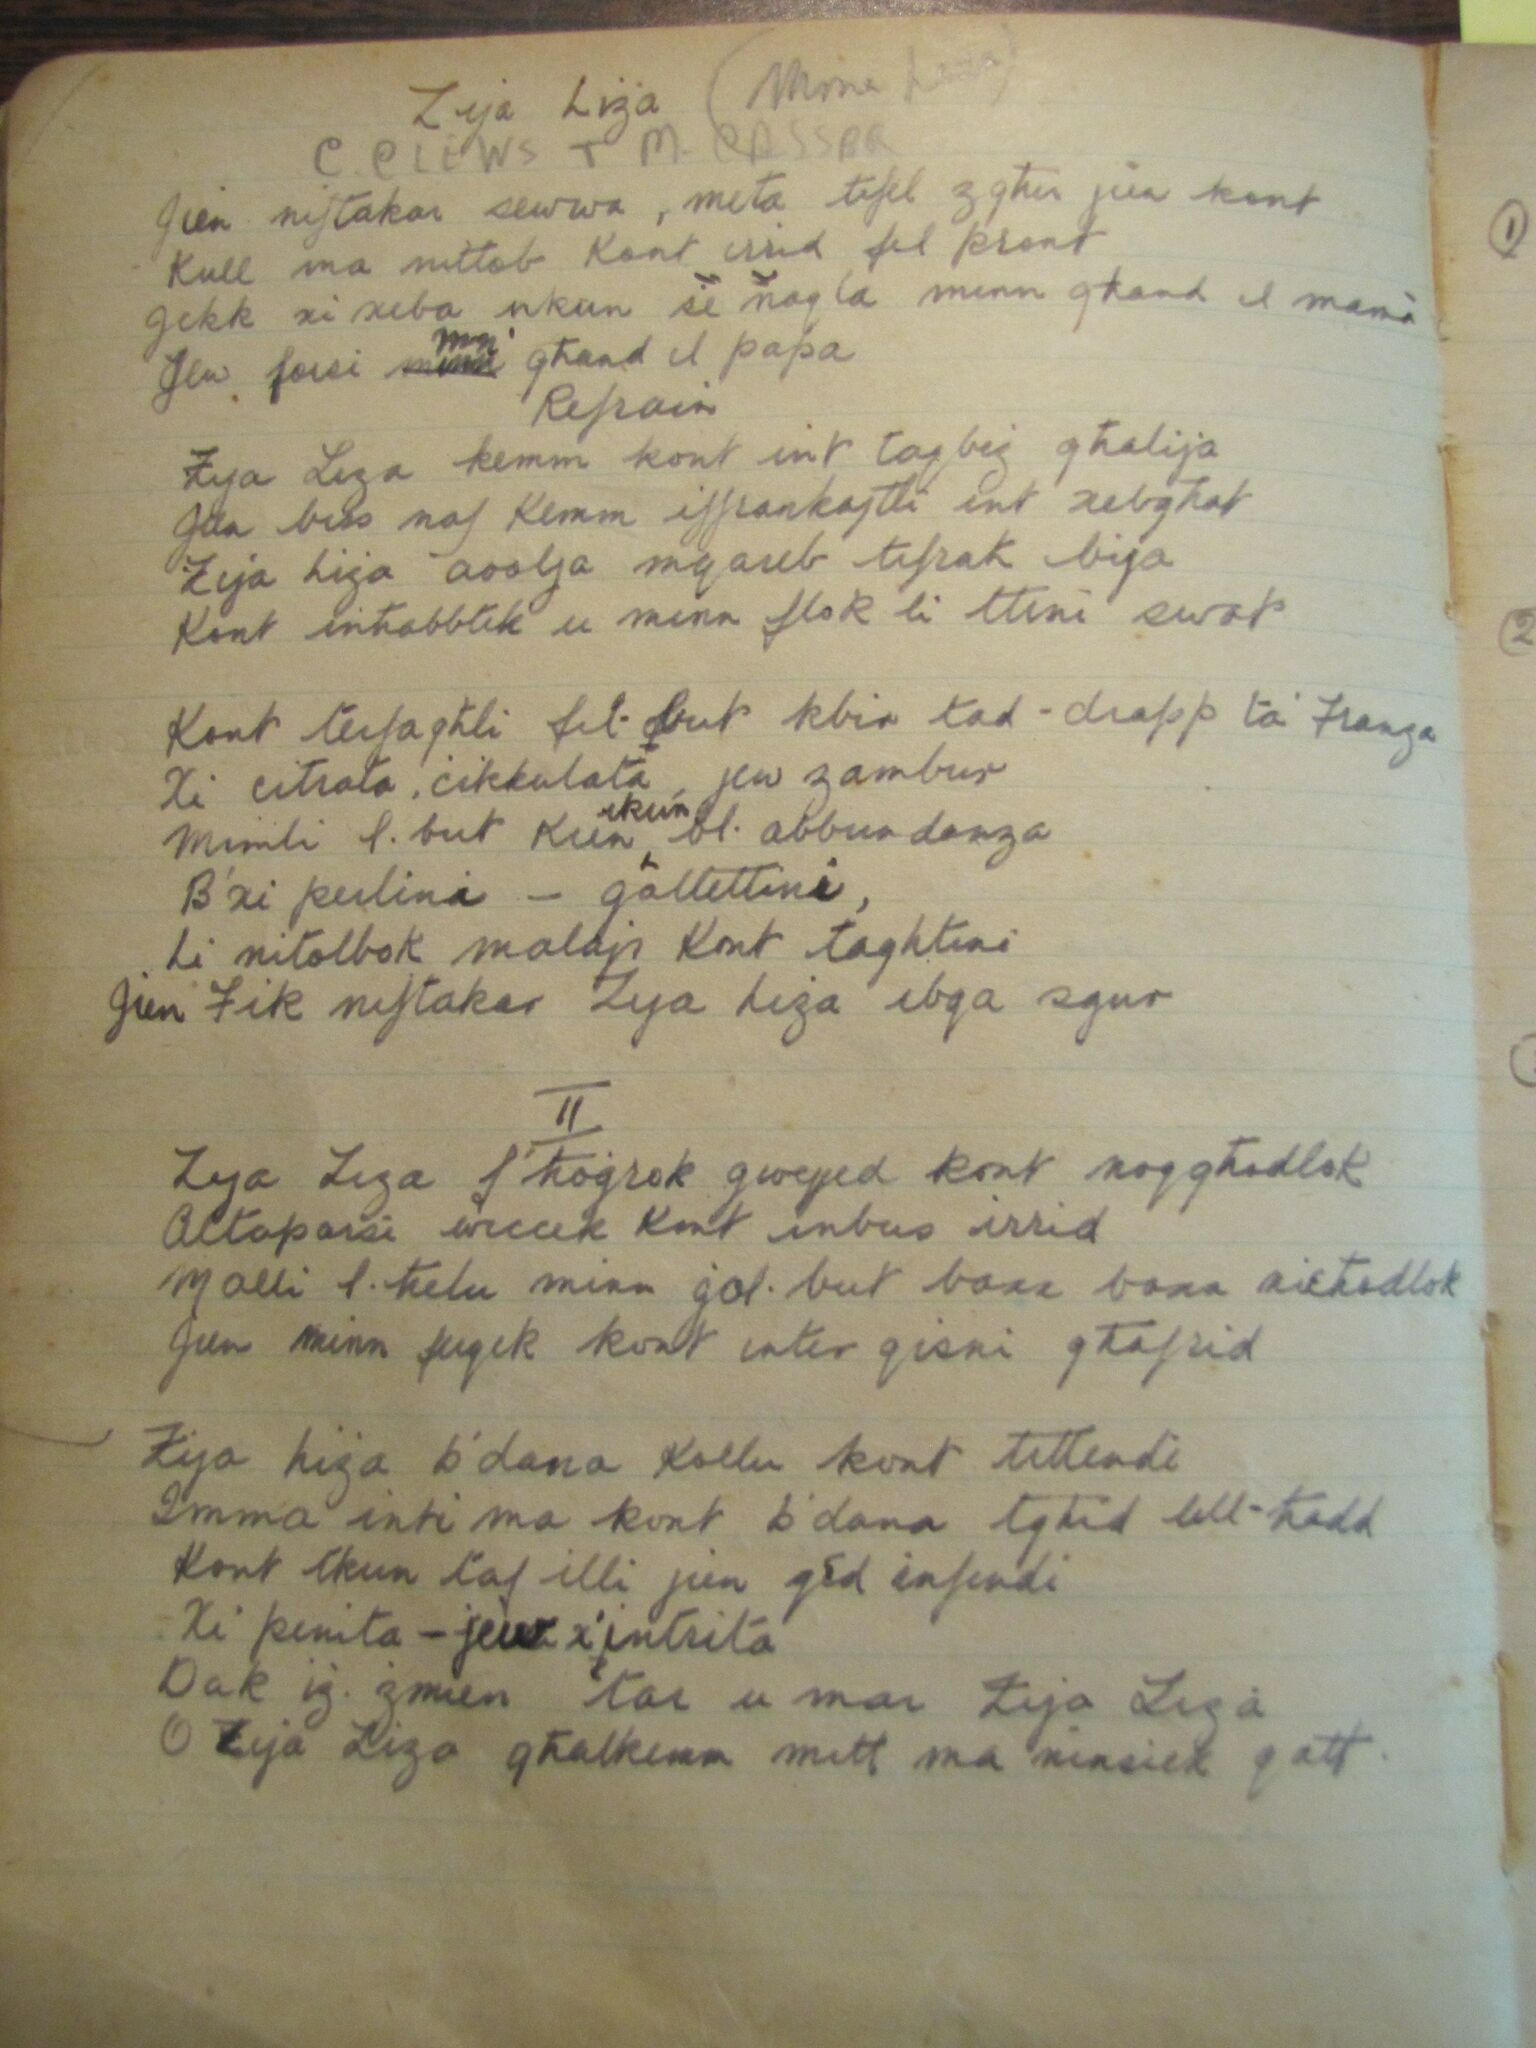 Zija Liża (Mona Liża)
C. CLEWS T M. CASSAR
Jien niftakar sewwa, meta tifel zgħir jien kont
Kull ma nitlob kont irrid fil pront
Jekk xi xeba nkun se naqla minn għand il mamà
Jew forsi mn' għand il papa
Refrain
Zija Liza kemm kont int taqbiż għalija
Jien biss naf kemm iffrankajtli int xebgħat
Zija Liża ta mqareb tifrak bija
Kont inħobbok u minn flok li ttini swat
Kont terfagħli fil-but kbir tad-drapp ta' Franza
Xi citrata, cikkulata, jew zambur
Mimli l-but kien ikun bl-abbundanza
B'xi perlini - gallettini,
Li nitolbok malajr kont tagħtini
Jien Fik niftakar Zija Liża ibqa sgur
II
Zija Liza f'ħogrok gwejjed kont noqgħodlok
Attaparsi wiccek kont inbus irrid
Malli l-ħelu minn ġol-but baxx baxx nieħodlok
Jien minn fuqek kont inter qisni għasfrid
Zija Liża b'dana kollu kont tittendi
Imma inti ma kont b'dana tgħid lill-ħadd
Kont tkun taf illi jien qed infendi
Xi penita - jew x'intrita
Dak iż-żmien tar u mar Zija Liza
O Zija Liza għalkemm mitt ma ninsiek qatt.
1
2